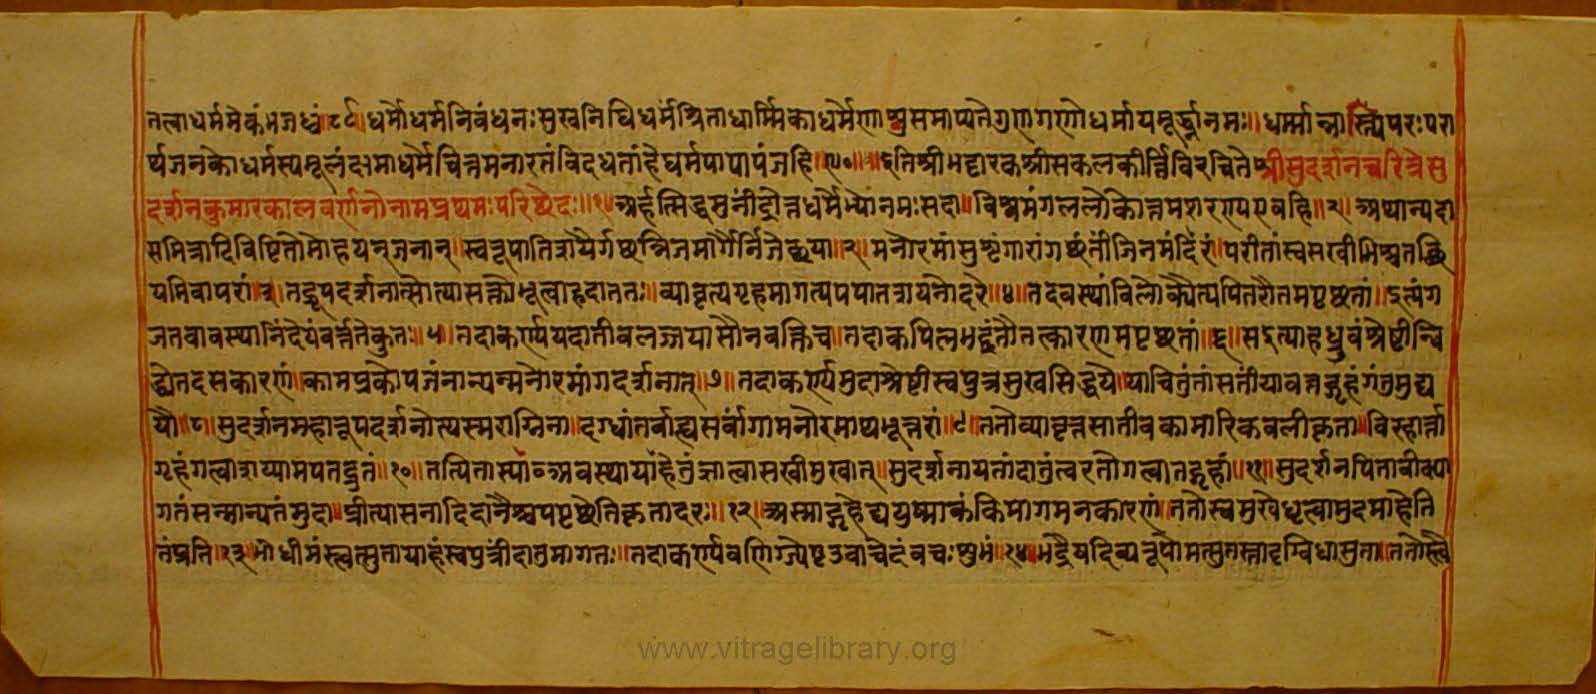 तत्वाधर्ममेकंभजध्वं॥८९॥धर्मोधर्मनिबंधनःसुखनिधिर्धर्मंश्रिताधार्म्मिकाधर्मेणाश्रुसमाप्यतेगुणगणोधर्मायमूर्द्ध्नानमः॥धर्मान्नास्त्यिपरःपरा
र्थजनकोधर्मस्यमूलंक्षमाधर्मेचित्तमनारतंविदधतांहेधर्मपापापंजहि॥९०॥इतिश्रीभट्टारकश्रीसकलकीर्त्तिविरचितेश्रीसुदर्शनचरित्रेसु
दर्शनकुमारकालवर्णनोनामप्रथमःपरिछेदः॥१॥अर्हत्सिद्धमुनींद्रोक्तधर्मेभ्योनमःसदा॥विश्वमंगललोकोत्तमशरण्यएवहि॥१॥अथान्यदा
समित्रादिविष्टितोमोहयन्जनान्॥स्वरूपातिशयैर्गछन्निजमार्गेर्निजेछया॥२॥मनोरमांसुशृंगारांगछंतींजिनमंदिरं॥परीतांस्वसखीभिश्चतछ्रि
यमिवापरां॥३॥तद्रूपदर्शनात्सोत्यासक्तोभूत्वाहदाततः॥व्याघुत्यगृहमागत्यपपातशयनोदरे॥४॥तदवस्थांविलोक्यैत्यपितरौतमपृछतां॥इत्यंग
जतवावस्थानिंदेयंवर्त्ततेकुतः॥५॥तदाकर्ण्ययदातीवलज्जयासौनवक्तिच॥तदाकपिलभट्टंतौतत्कारणमपृछतां॥६॥सइत्याहध्रुवंश्रेष्टीन्वि
द्ध्येतदसकारणं॥कामप्रकोपजंनान्यन्मनोरमांगदर्शनात्॥७॥तदाकर्ण्यमुदाश्रेष्टीस्वपुत्रसुखसिद्धये॥याचितुंतांसतींयावत्तद्गृहंगंतुमुद्य
यौ॥८॥सुदर्शनमहारूपदर्शनोत्यस्मराग्निना॥दग्धांतर्बाह्यसर्वांगामनोरमाप्यभूत्तरां॥९॥ततोव्याघुत्तसातीवकामारिकवलीकृता॥विस्हार्त्ता
गृहंगत्वाशय्यामपतद्द्रुतं॥१०॥तत्पितास्याअवस्थायाहेतुंज्ञात्वासखीमुखात्॥सुदर्शनायतांदातुंत्वरतोगत्वातद्गृहं॥११॥सुदर्शनपितावीक्ष्या
गतंसन्मान्यतंमुदा॥प्रीत्यासनादिदानैश्चपप्रछेतिकृतादरः॥१२॥अस्माद्गृहेद्ययुष्माकंकिमागमनकारणं॥ततोस्वमुखेधृत्वामुदमाहेति
तंप्रति॥१३॥भोधीमंस्त्वत्सुतायाहंस्वपुत्रींदातुमागतः॥तदाकर्ण्यवणिग्ज्येष्टउवाचेदंवचःशुभं॥१४॥भद्रेयदिव्यरूपोमत्सुतस्तादृग्विधासुता॥ततोस्त्वै